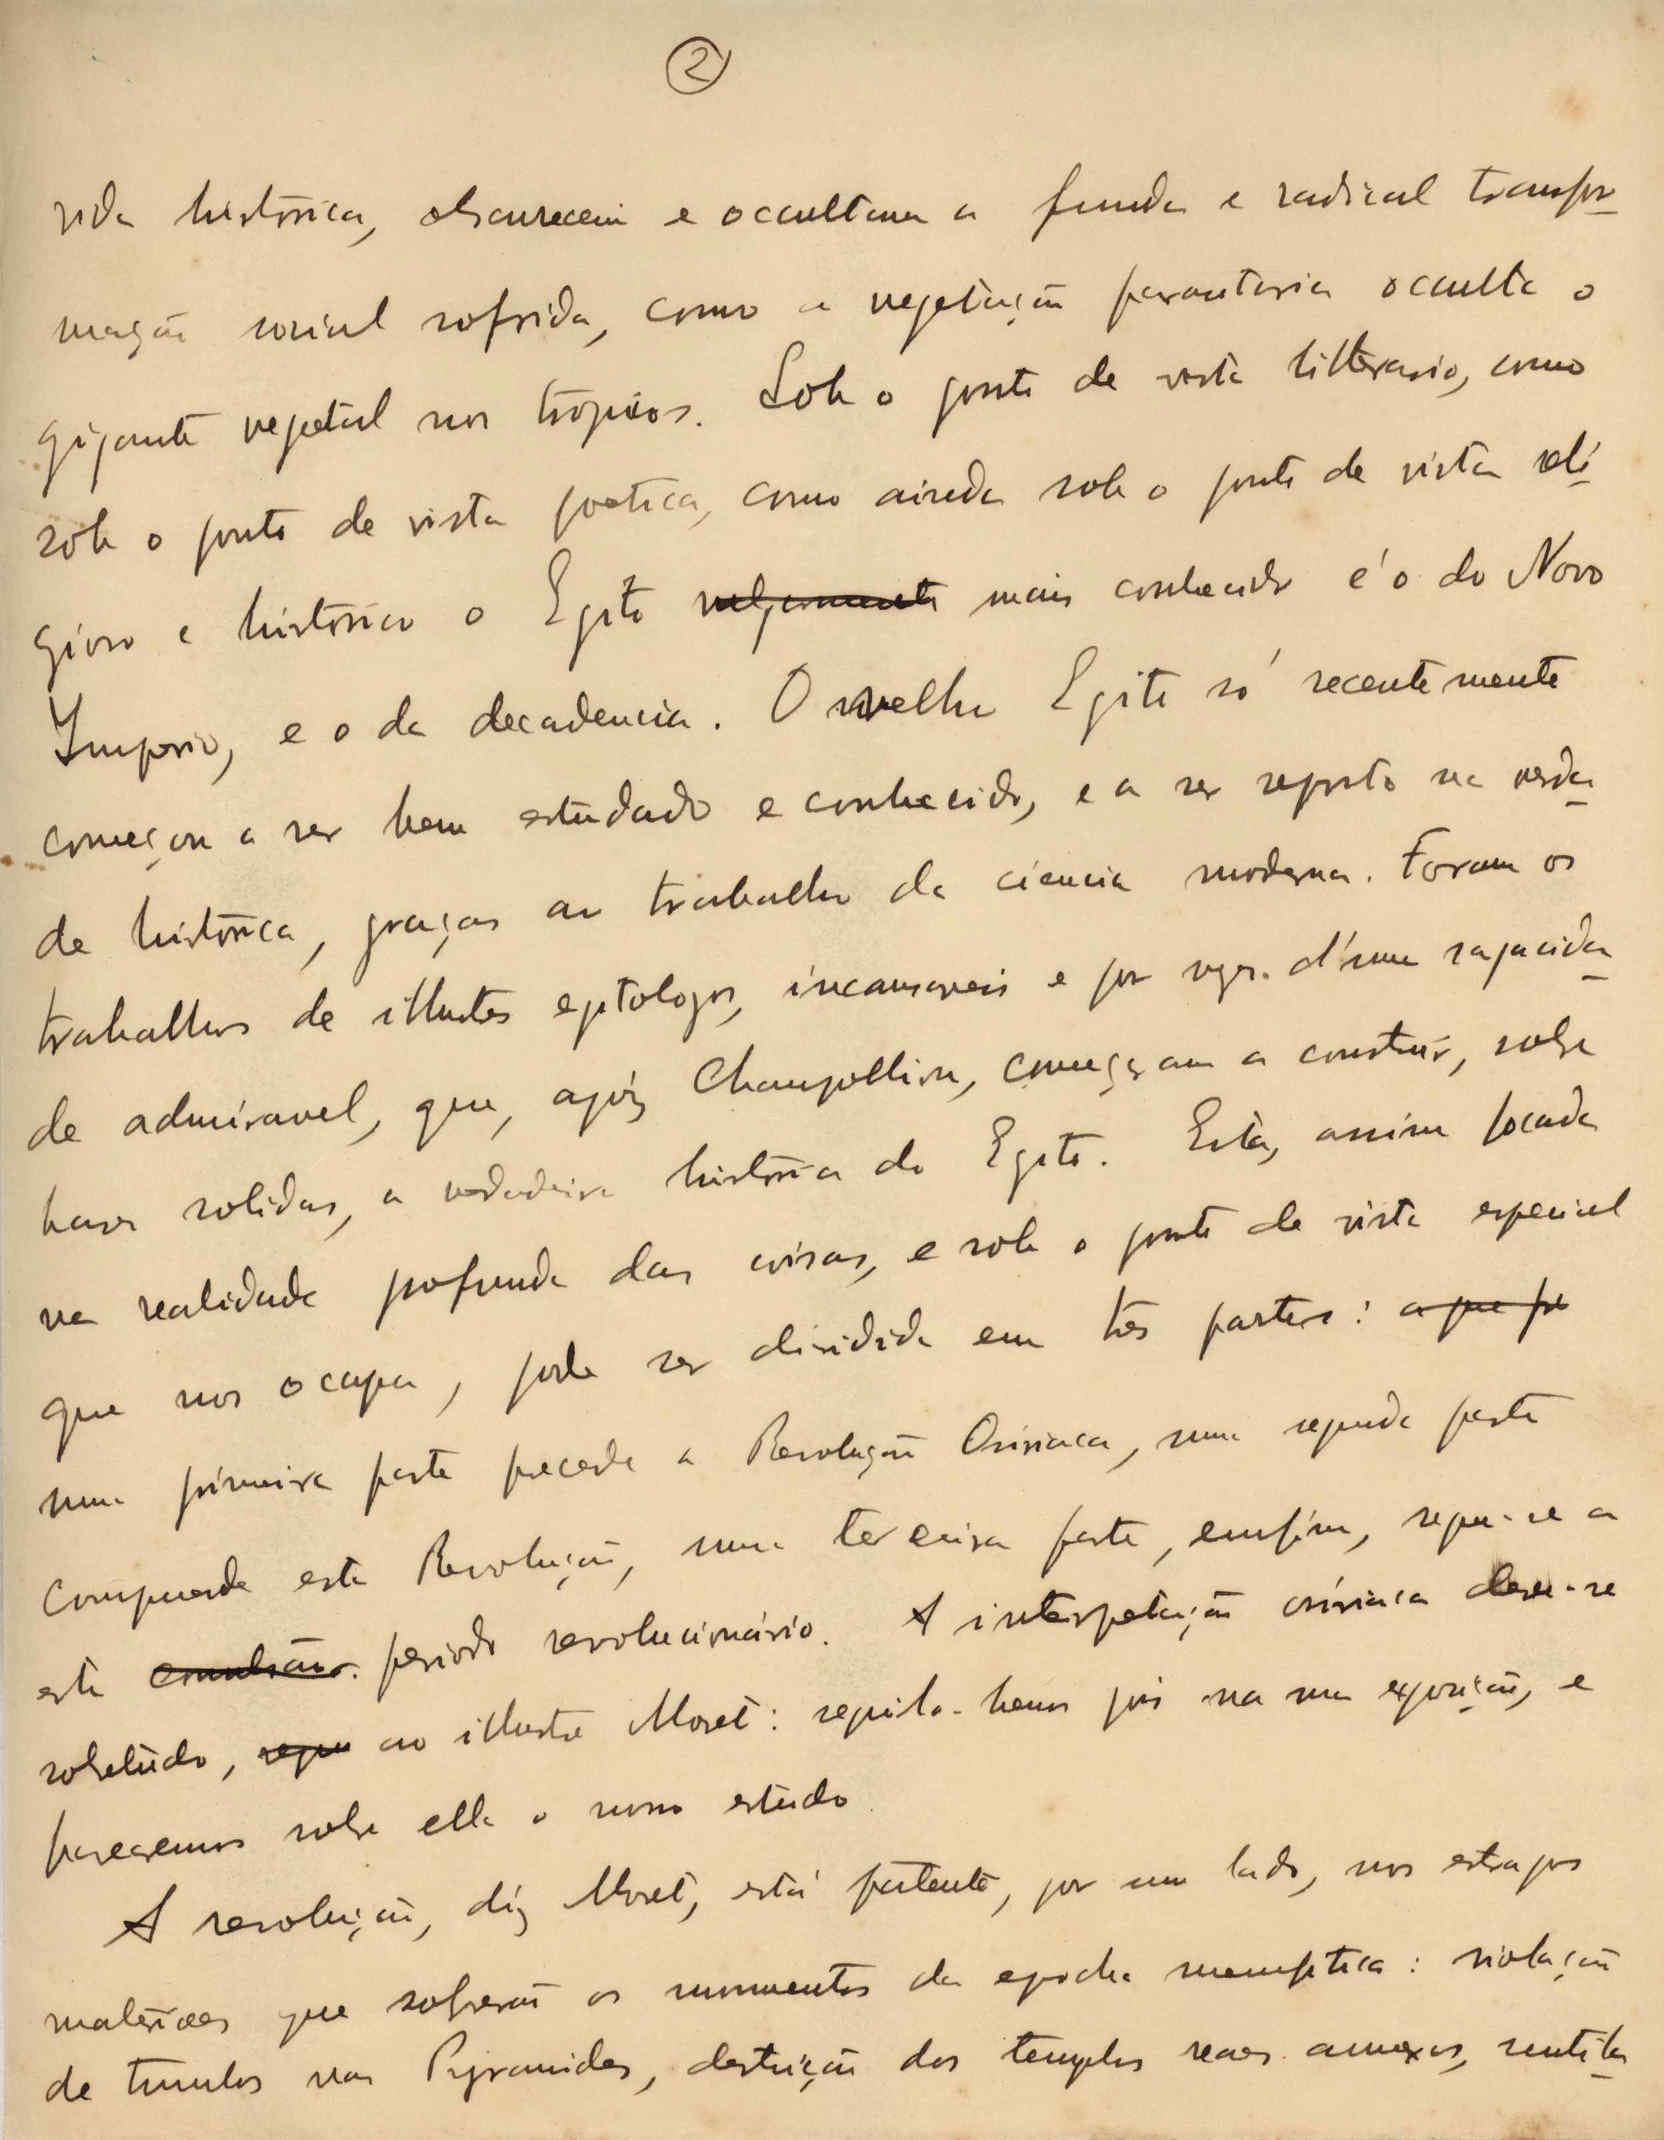 2
vida histórica, obscurecem e occultam a funda e radical transfor-
mação social sofrida, como a vegetação parasitaria occulta o
gigante vegetal nos trópicos. Sob o ponto de vista litterario, como
sob o ponto de vista poetica, como ainda sob o ponto de vista reli-
gioso e histórico o Egito vulgarmente mais conhecido é o do Novo
Imperio, e o da decadencia. O velho Egito só recentemente
começou a ser bem estudado e conhecido, e a ser reposto na verda-
de histórica, graças ao trabalho da ciencia moderna. Foram os
trabalhos de illustres egitologos, incansaveis e por vezes d'uma sagacida-
de admiravel, que, após Champollion, começaram a construir, sobre
bases solidas, a verdadeira história do Egito. Esta, assim focada
na realidade profunda das coisas, e sob o ponto de vista especial
que nos ocupa, pode ser dividida em três partes: a que pre
uma primeira parte precede a Revolução Osiriaca, uma segunda parte
compreende esta Revolução, uma terceira parte, emfim, segue-se a
este periodo revolucionário. A interpetação osiriaca deve-se
sobretudo, segun ao illustre Moret: seguila-hemos pois na sua exposição, e
basearemos sobre ella o nosso estudo
A revolução, diz Moret, está patente, por um lado, nos estragos
materiaes que sofreram os monumentos da epocha memfitica: violação
de tumulos nas Pyramides, destruição dos templos reaes anexos, mutila-